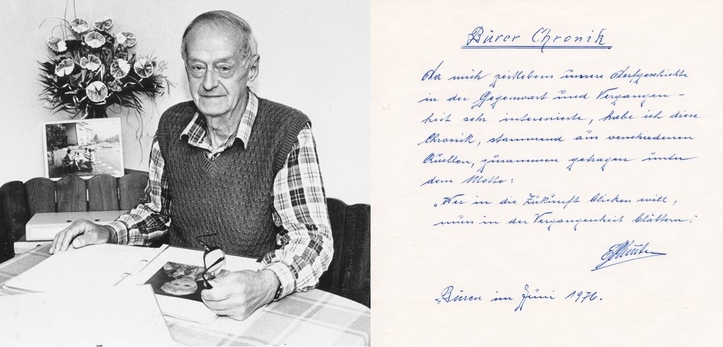 Bürer Chronik
Da mich zeitlebens unsere Dorfgeschichte
in der Gegenwart und Vergangen-
heit sehr interessierte, habe ich diese
Chronik, stammend aus verschiedenen
Quellen, zusammen getragen unter
dem Motto:
"Wer in die Zukunft blicken will,
muss in der Vergangenheit blättern."
Büren im Juni 1976.